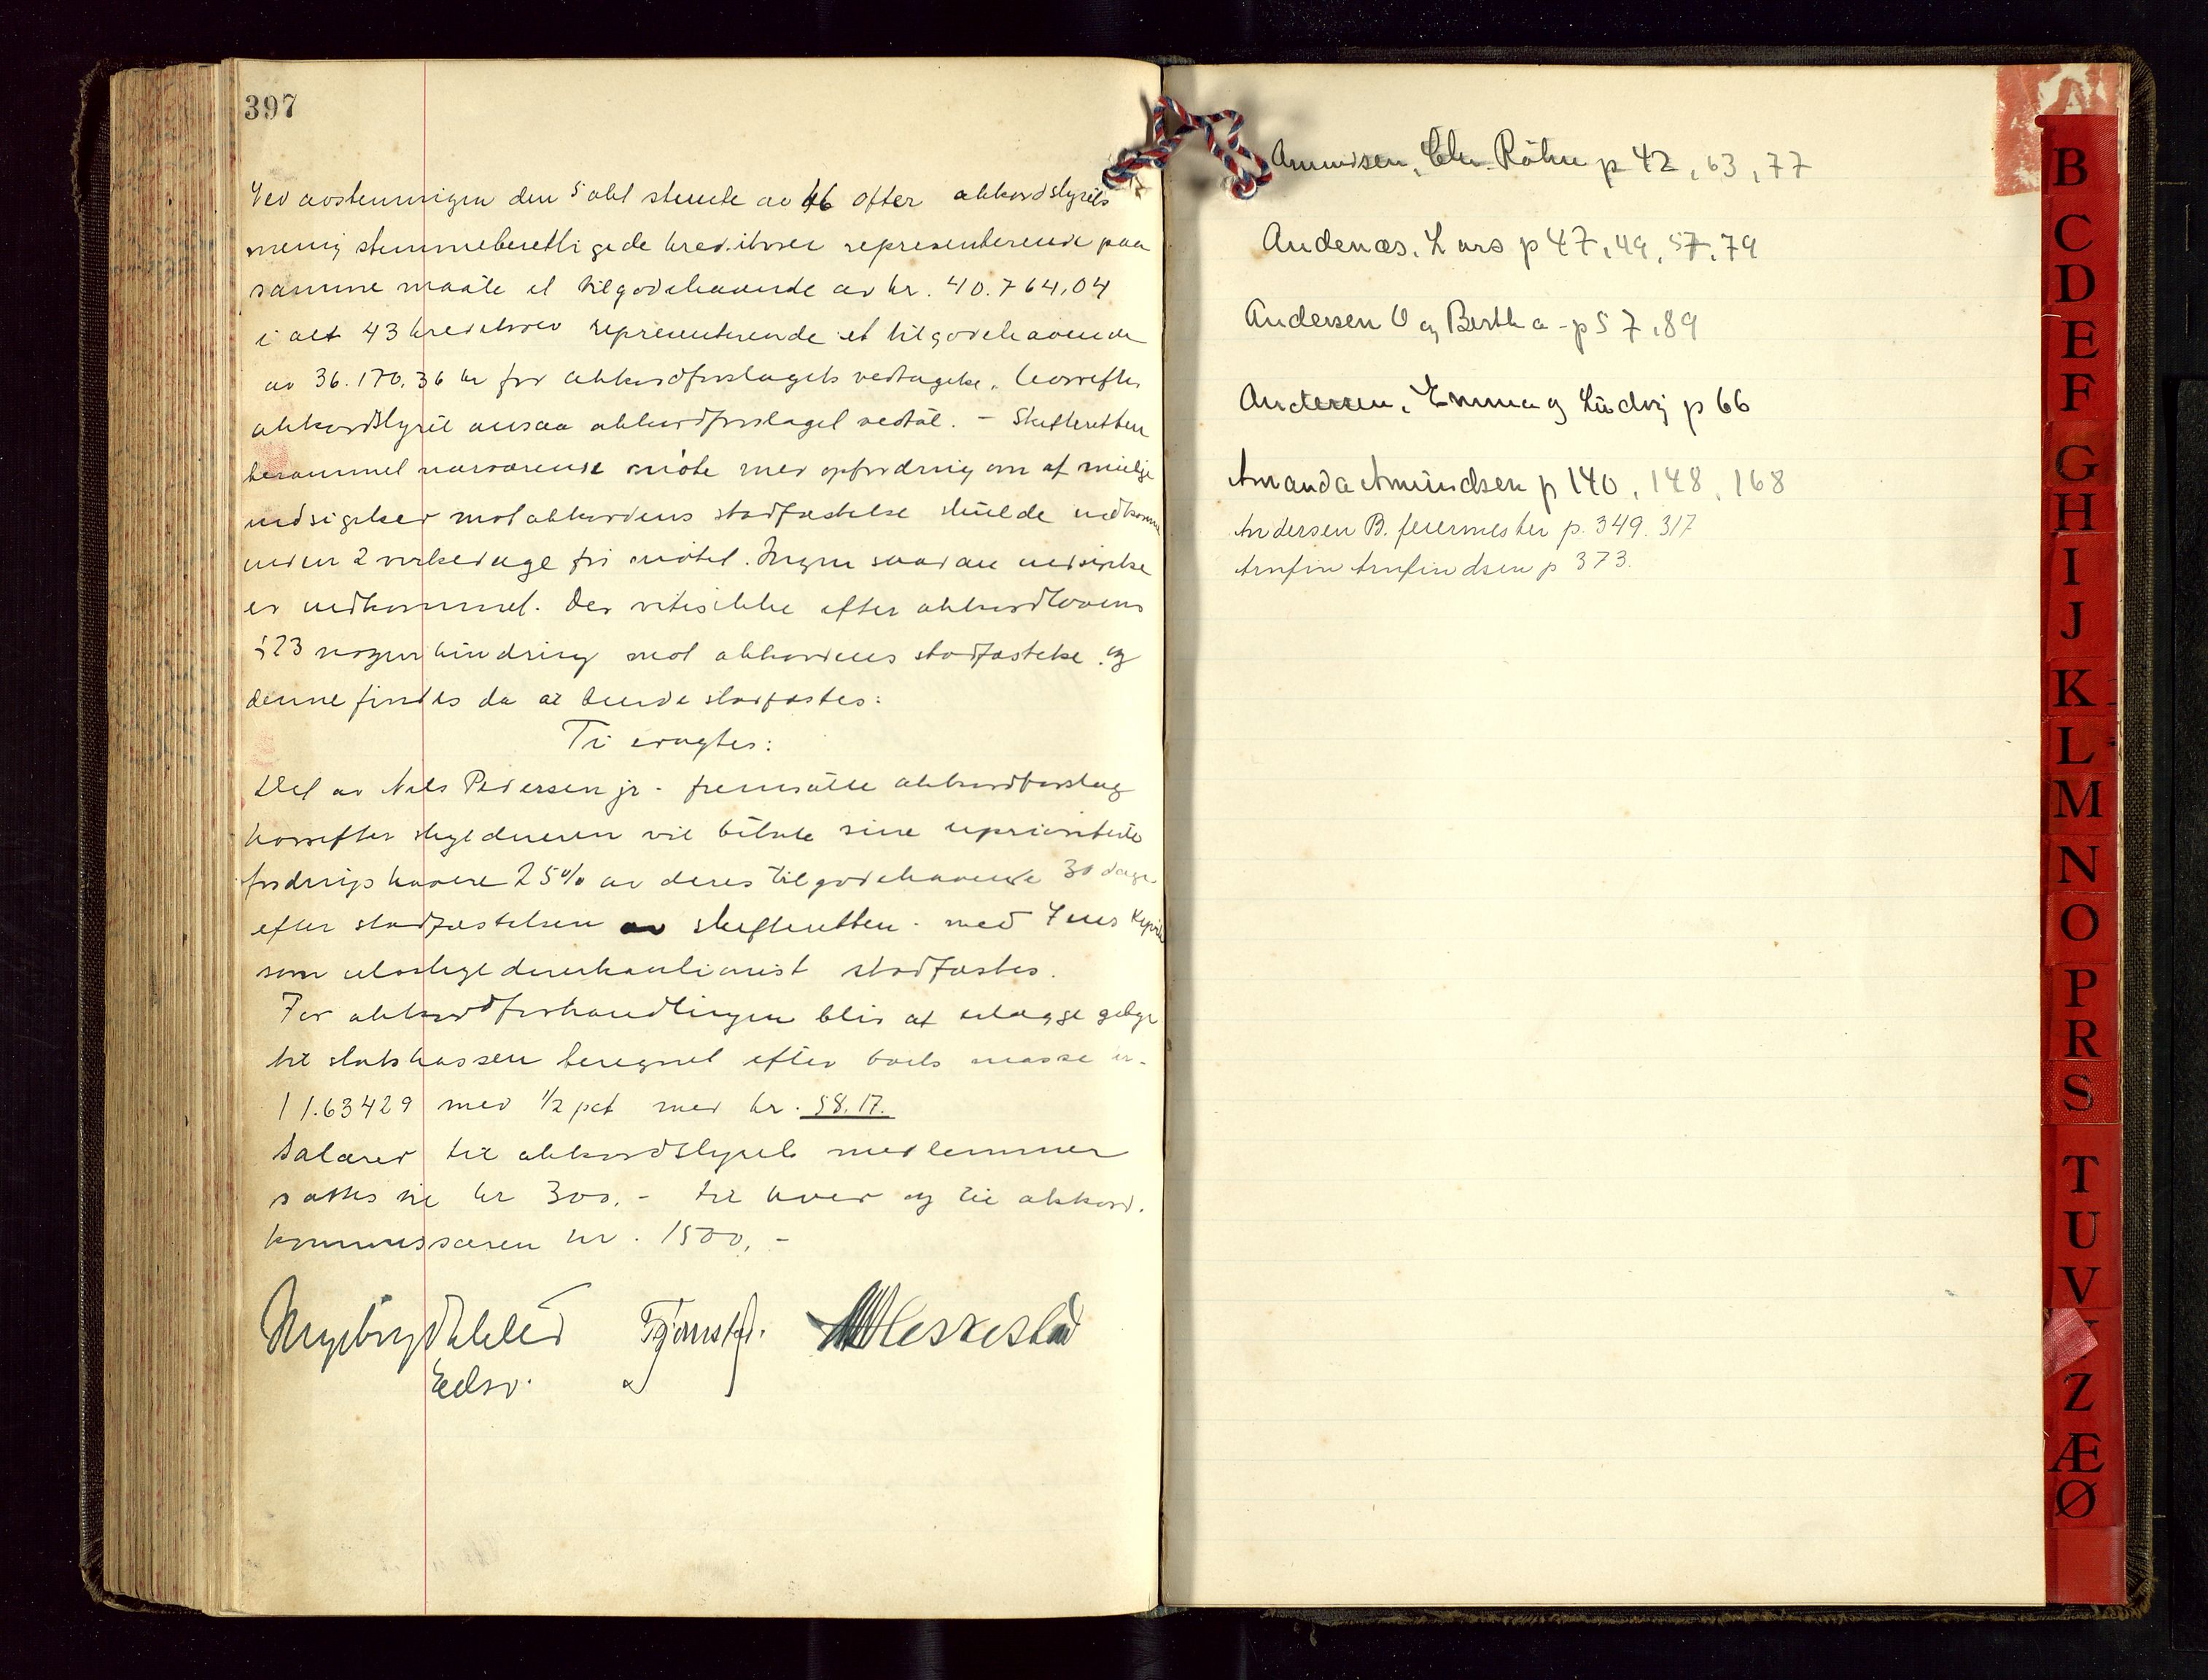 397
Ved avstemningen den 5 okt stemte av 46 efter akkordstyrets
mening stemmeberettigede kreditorer representerende paa
samme maate et tilgodehavende av kr. 40.764,04
i alt 43 kreditorer representerende et tilgodehavende
av 36.170,36 kr for akkordforslagets vedtagelse, hvorefter
akkordstyret ansaa akkordforslaget vedtat. - Skifteretten
berammet nærværende møte med opfordring om at mulige
indsigelser mot akkordens stadfæstelse skulde indkomme
inden 2 virkedage før møtet. Ingen saadan indsigelse
er indkommet. Der vites ikke efter akkordlovens
§23 nogen hindring mot akkordens stadfæstelse og
denne findes da at burde stadfæstes:
Ti eragtes:
Det av Nils Pedersen jr. fremsatte akkordforslag
hvorefter skyldneren vil betale sine uprioriterte
fordringshavere 25% av deres tilgodehavende 30 dage
efter stadfæstelsen av skifteretten med Jens
som selvskyldnerkautionist stadfæstes.
For akkordforhandlingen blir at erlægge gebyr
til statskassen beregnet efter boets masse kr.
11.634 29 med 1/2 pct med kr. 58.17.
Salærer til akkordstyrets medlemmer
sættes til kr 300,- til hver og til akkord.
kommissæren kr. 1500,-
Edsv.
Amundsen, Chr. Röhne p 42, 63, 77
Andenæs, Lars p 47, 49, 57, 79
Andersen O og Bertha - p 57, 89
Andersen, Emma og Ludvig p 66
Amanda Amundsen p 140, 148, 168
Andersen B. feiermester p. 349. 317
Arnfin Arnfindsen p 373.
B
C
D
E
F
G
H
I
J
K
L
M
N
O
P
R
S
T
U
V
Z
Æ
Ø